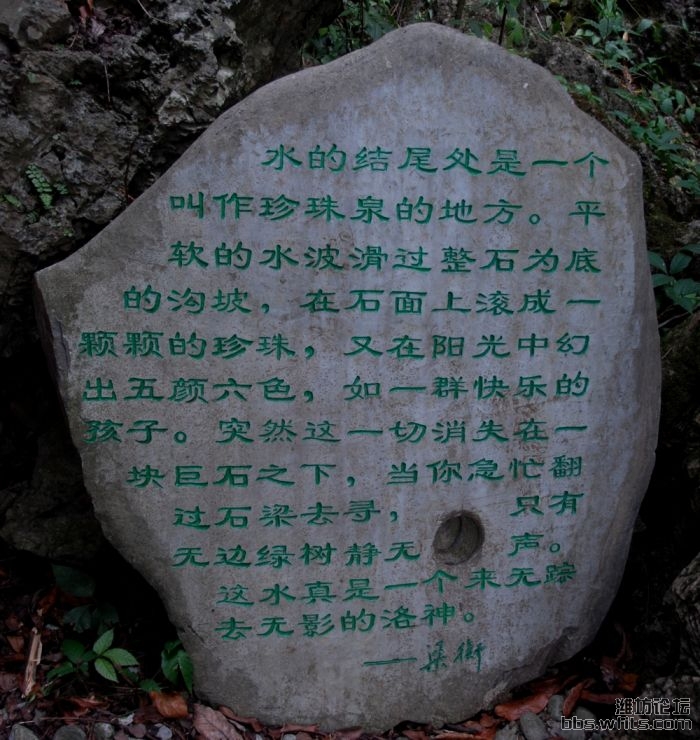 水的结尾处是一个
叫作珍珠泉的地方。平
软的水波滑过整石为底
的沟坡，在石面上滚成一
颗颗的珍珠，又在阳光中幻
出五颜六色，如一群快乐的
孩子。突然这一切消失在一
块巨石之下，当你急忙翻
过石梁去寻，只有
无边绿树静无声。
这水真是一个来无踪
去无影的洛神。
——梁衡
潍坊论坛
bbs.wfits.com